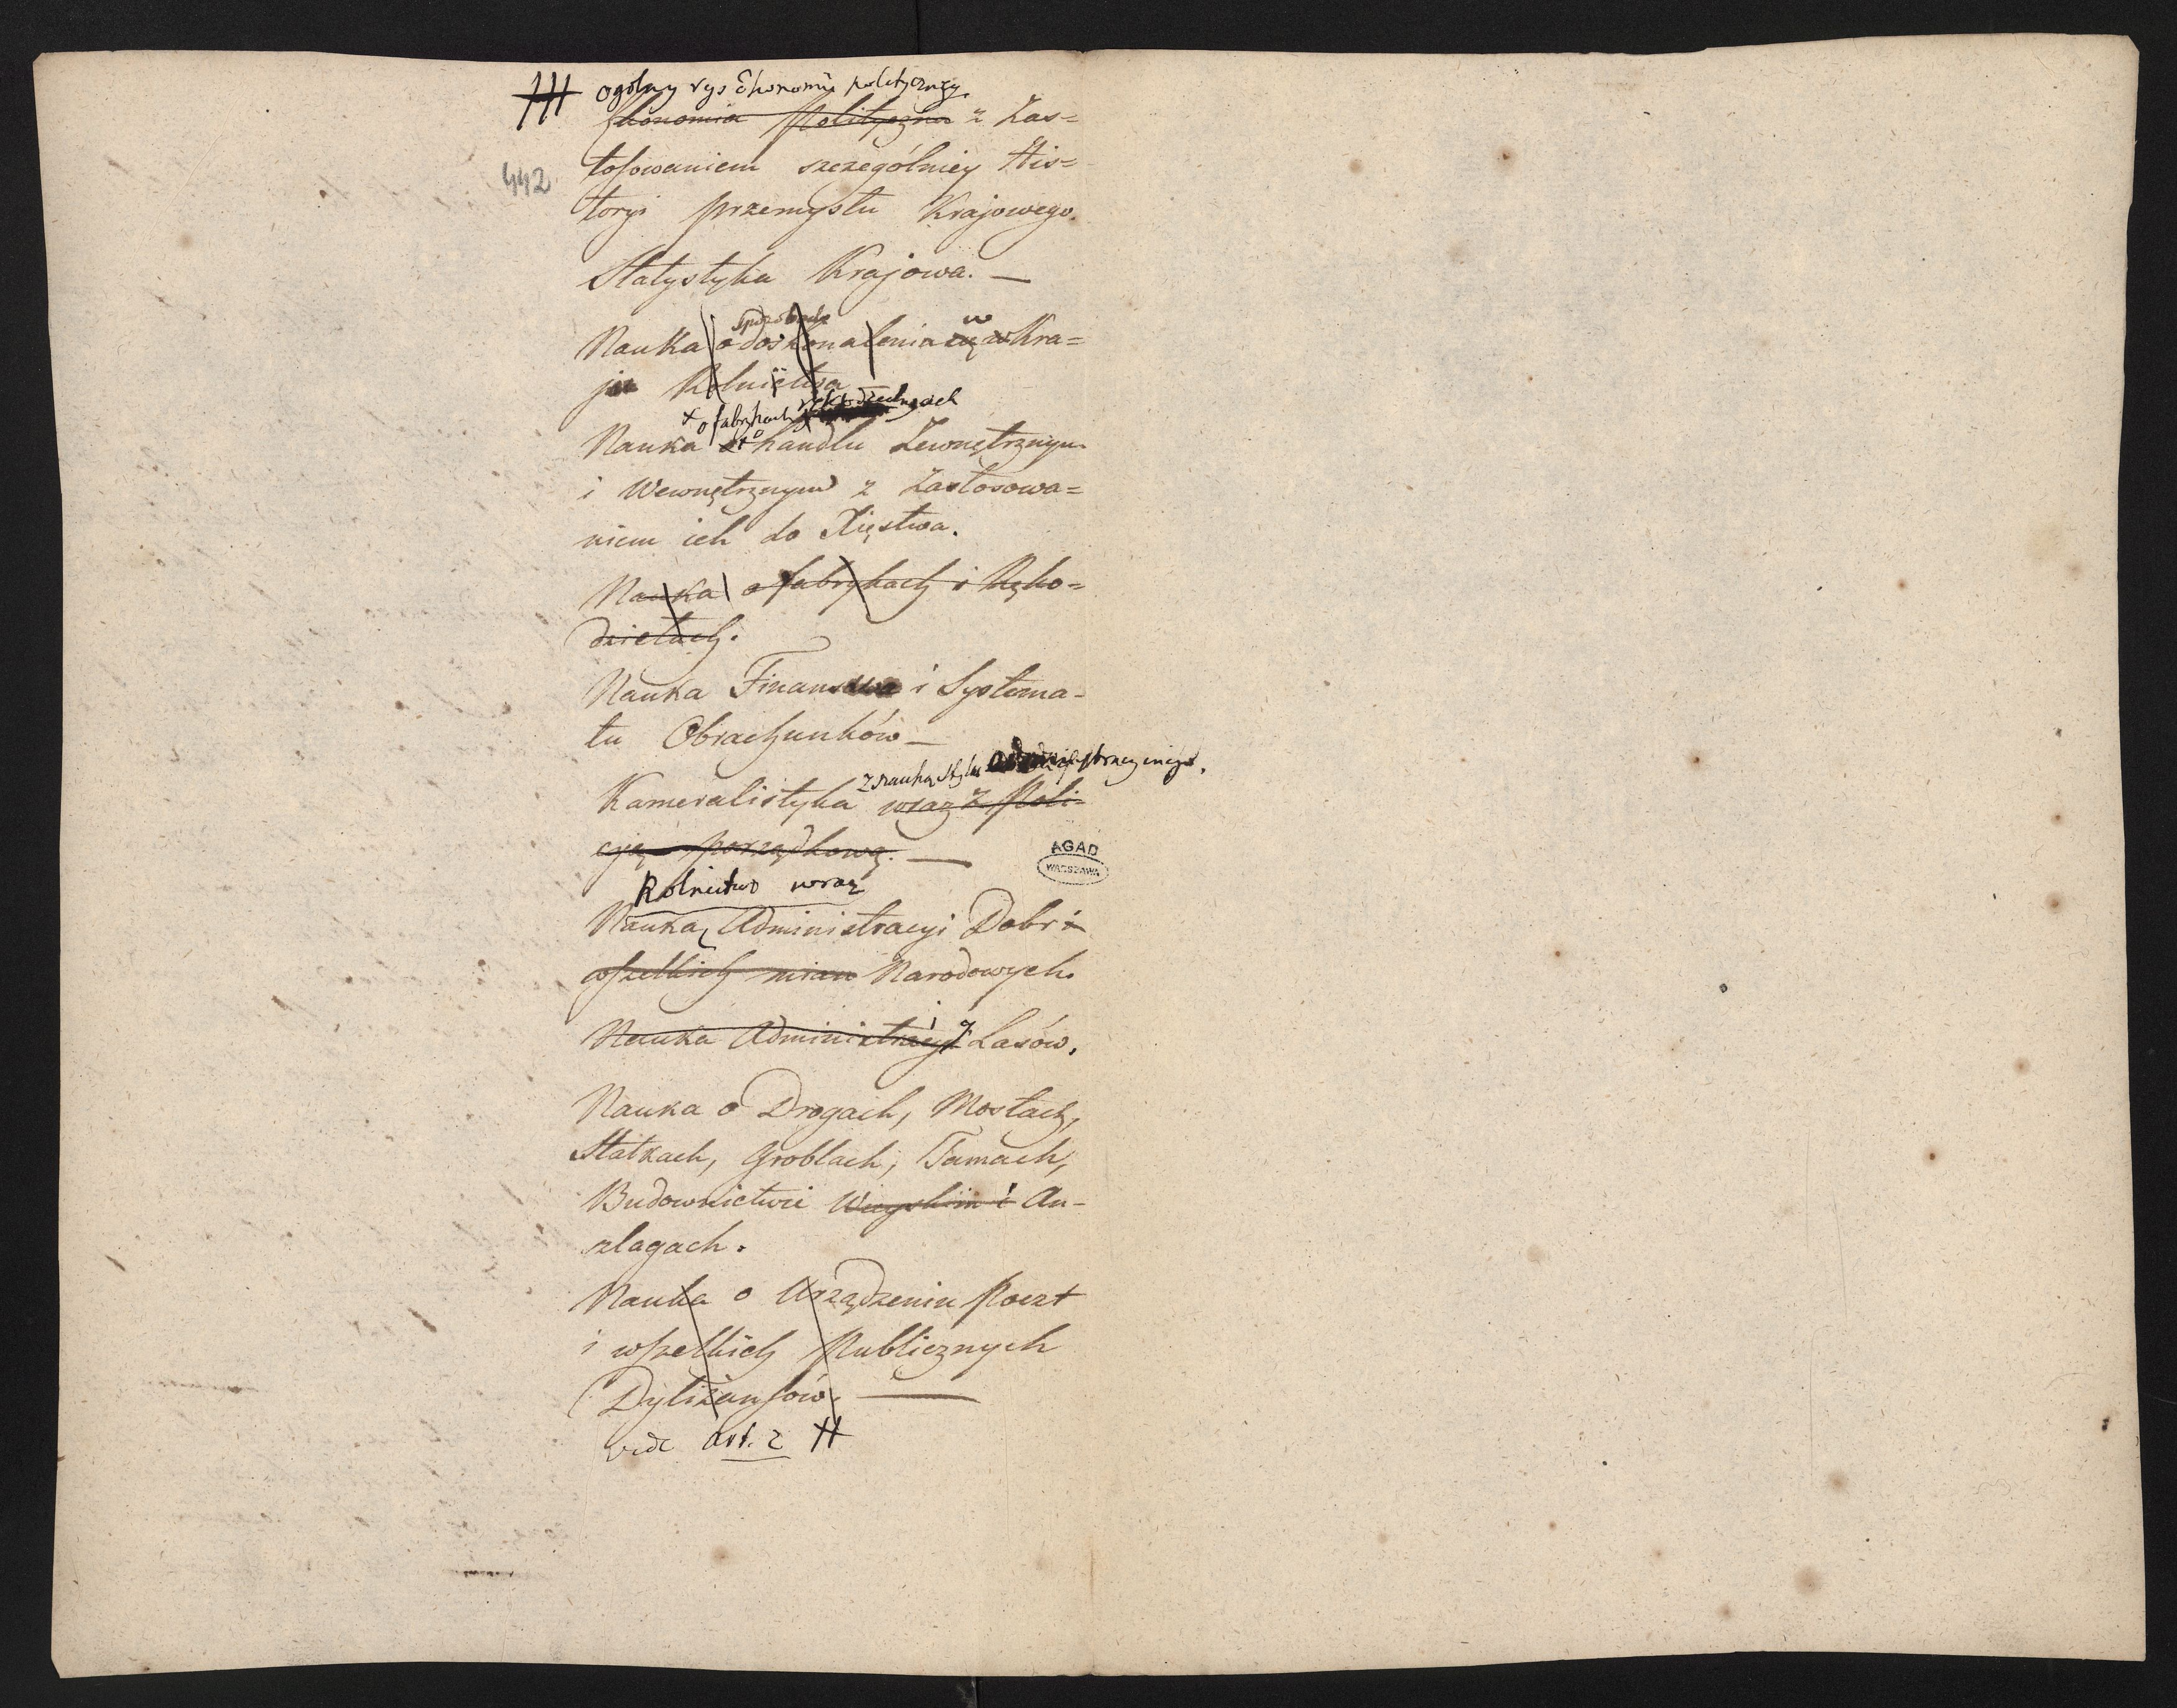 ogólny rys Ekonomii polityczney
Ekonomia Polityczna z Zas=
442
tosowaniem szczególniey His=
toryi przemysłu Krajowego.
Statystyka Krajowa. —
sposobach
w
Nauka o doskonalenia się w Kra=
ju Rolnictwa
+ o fabrykach rękodzielniach
Nauka o handlu Zewnętrznym
i Wewnętrznym z Zastosowa=
niem ich do Xięstwa.
Nauka o fabrykach i Ręko=
dziełach.
Nauka Finansowa i Systema-
tu Obrachunków —
z nauką stylu administracyinego.
Kameralistyka wraz z Poli-
cyją porządkową. —
AGAD
WARSZAWA
Rolnictwo wraz
Nauka Administracyi Dobr i
wszelkich mian Narodowych.
i
Nauka Administracyi Lasów.
Nauka o Drogach, Mostach,
Statkach, Groblach, Tamach,
Budownictwie Wieyskim i An-
slagach.
Nauka o Urządzeniu Poczt
i wszelkich Publicznych
Dyliżansów. —
vide Art. 2 #